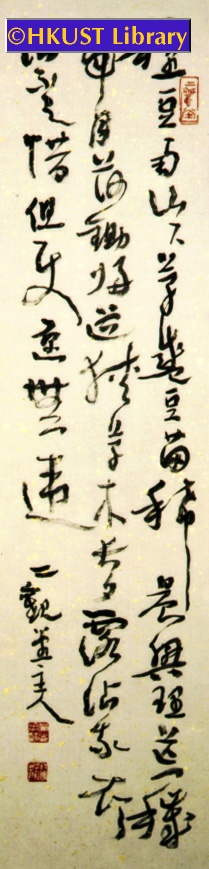 ©HKUST Library
種豆南山下草盛豆苗稀晨興理荒穢
帶月荷鋤歸道狹草木長夕露沾我衣衣
沾不足惜但使願無違
觀堂主人